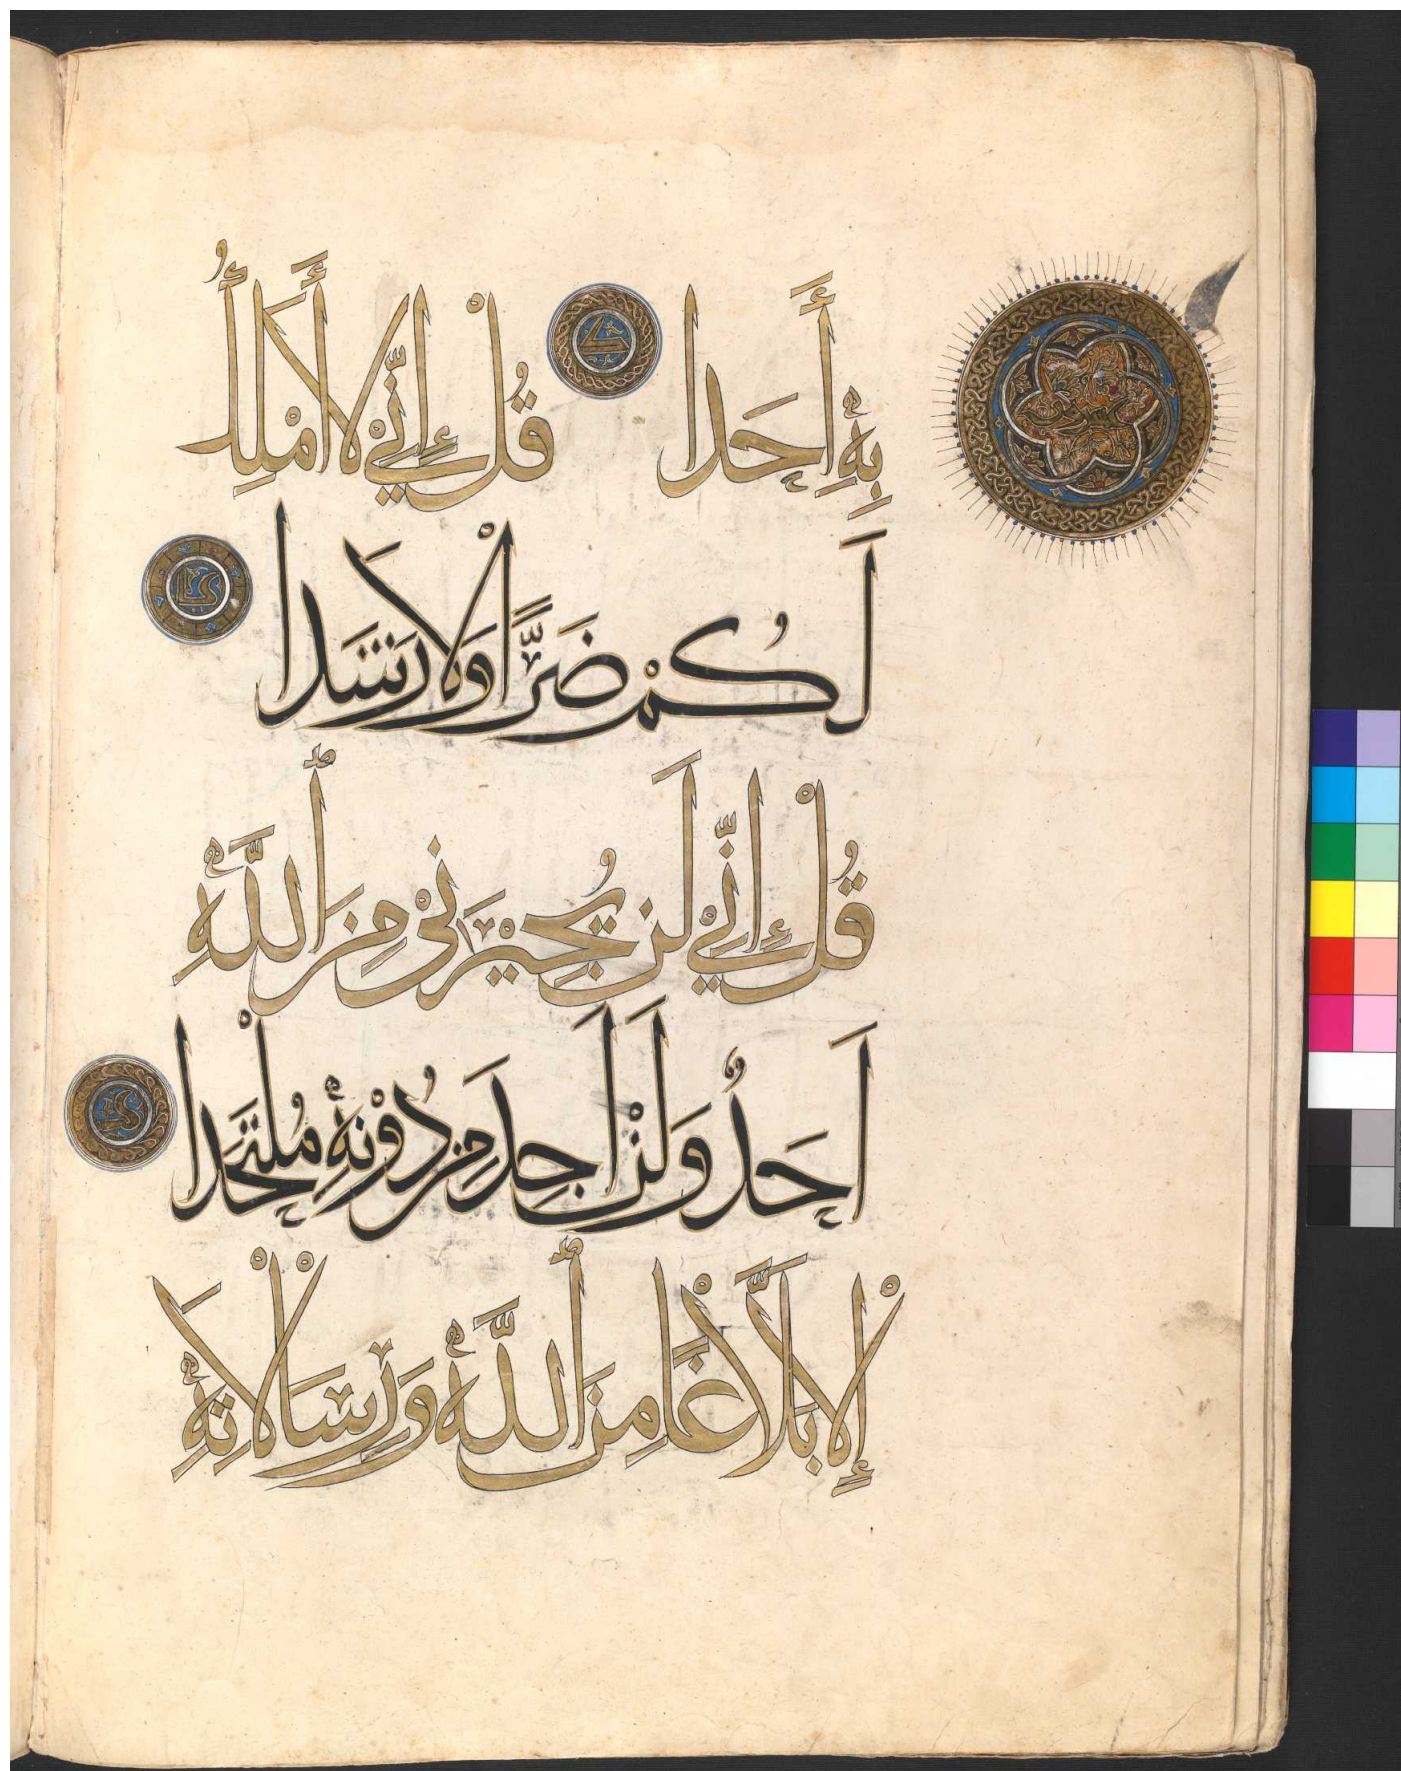 بِهِ أَحَدًا قُلْ إِنِّي لَا أَمْلِكُ
لَكُمْ ضَرًّا وَلَا رَشَدًا
قُلْ إِنِّي لَنْ يُجِيرَنِي مِنَ اللَّهِ
أَحَدٌ وَلَنْ أَجِدَ مِنْ دُونِهِ مُلْتَحَدًا
إِلَّا بَلَاغًا مِنَ اللَّهِ وَرِسَالَاتِهِ